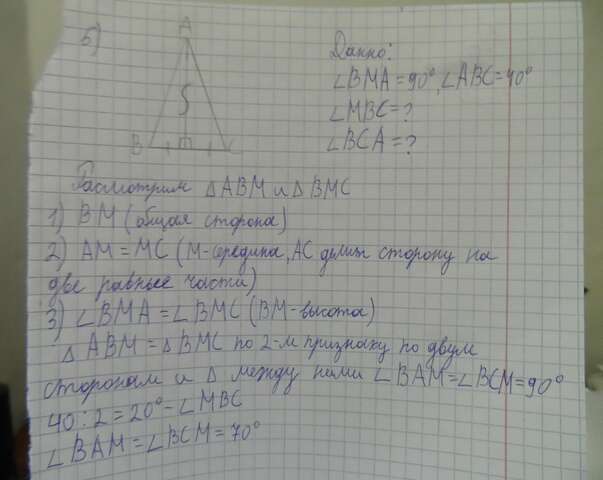 5)
A
B m C
Данно:
∠BMA = 90°, ∠ABC = 40°
∠MBC = ?
∠BCA = ?
Расмотрим △ABM и △BMC
1) BM (общая сторона)
2) AM = MC (M-середина, AC делит сторону на
две равные части)
3) ∠BMA = ∠BMC (BM-высота)
△ ABM = △BMC по 2-м признаку по двум
сторонам и △ между ними ∠BAM = ∠BCM = 90°
40 : 2 = 20° = ∠MBC
∠BAM = ∠BCM = 70°